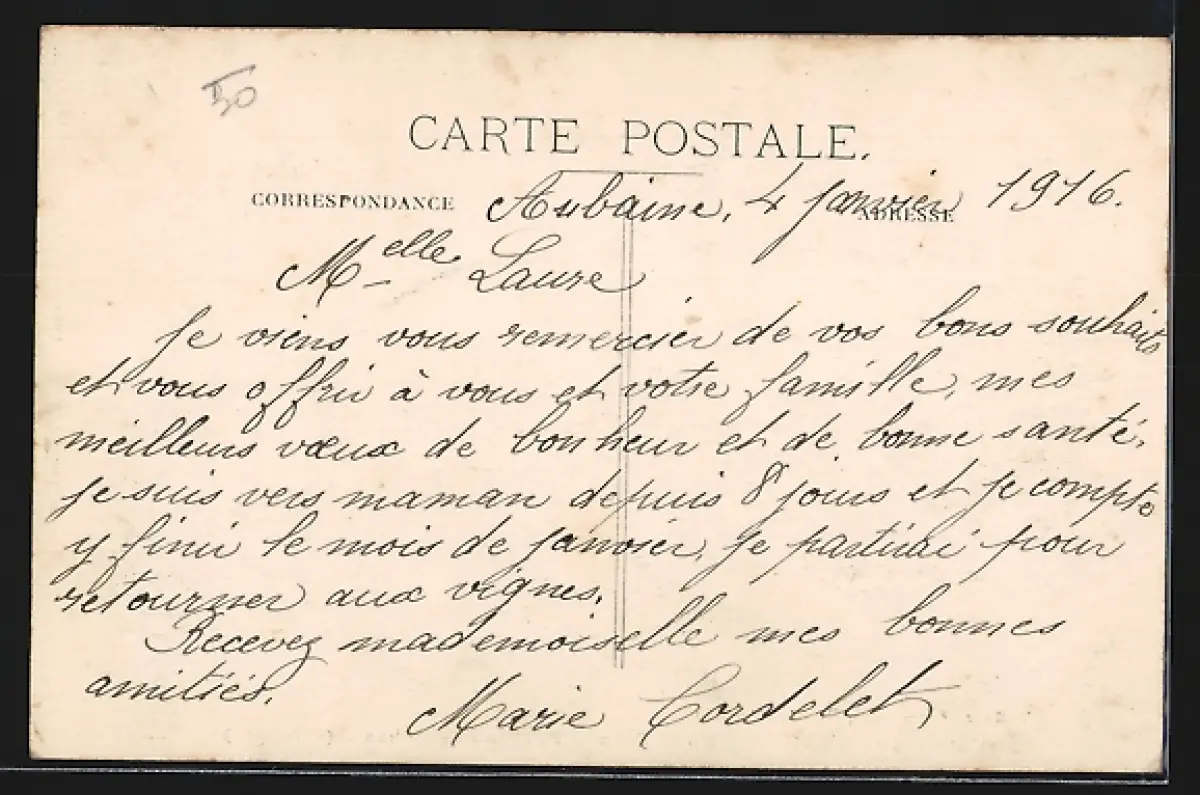 50
CARTE POSTALE.
CORRESPONDANCE
ADRESSE
Aubaine, 4 janvier 1916.
Melle Laure
Je viens vous remercier de vos bons souhaits
et vous offrir à vous et votre famille, mes
meilleurs vœux de bonheur et de bonne santé.
Je suis vers maman depuis 8 jours et je compte
y finir le mois de janvier, je partirai pour
retourner aux vignes.
Recevez mademoiselle mes bonnes
amitiés.
Marie Cordelet